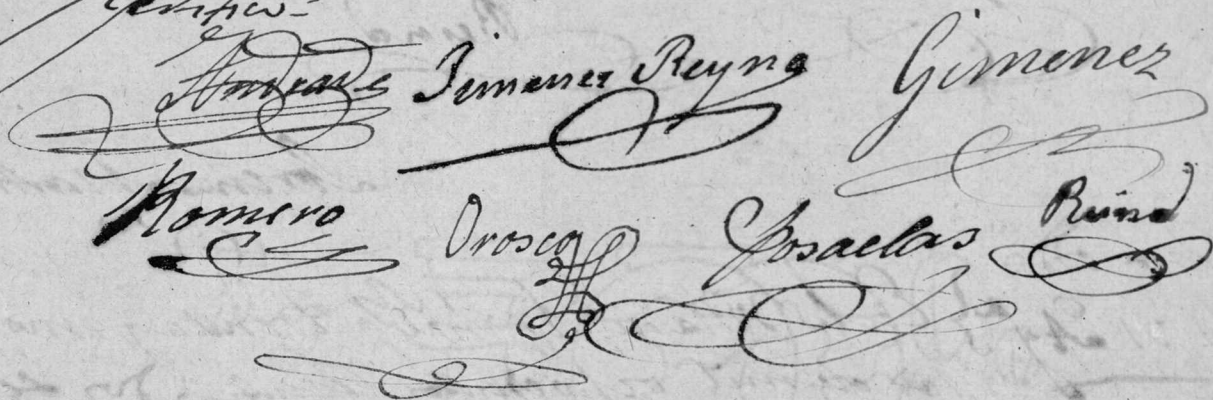 certifico-
Andrade Jimenez Reyna Gimenez
Romero Orosco Posaelas Ruina